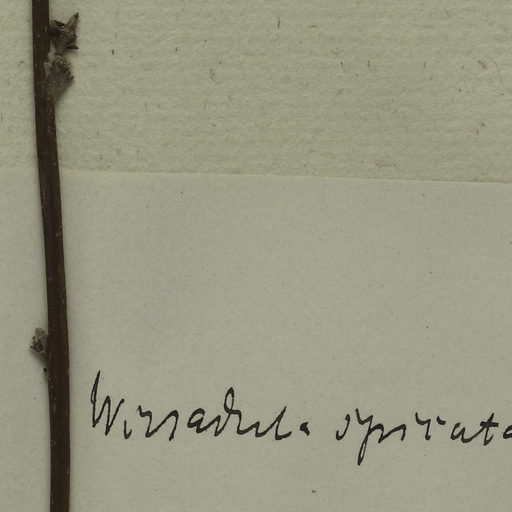 Wissadula spicata